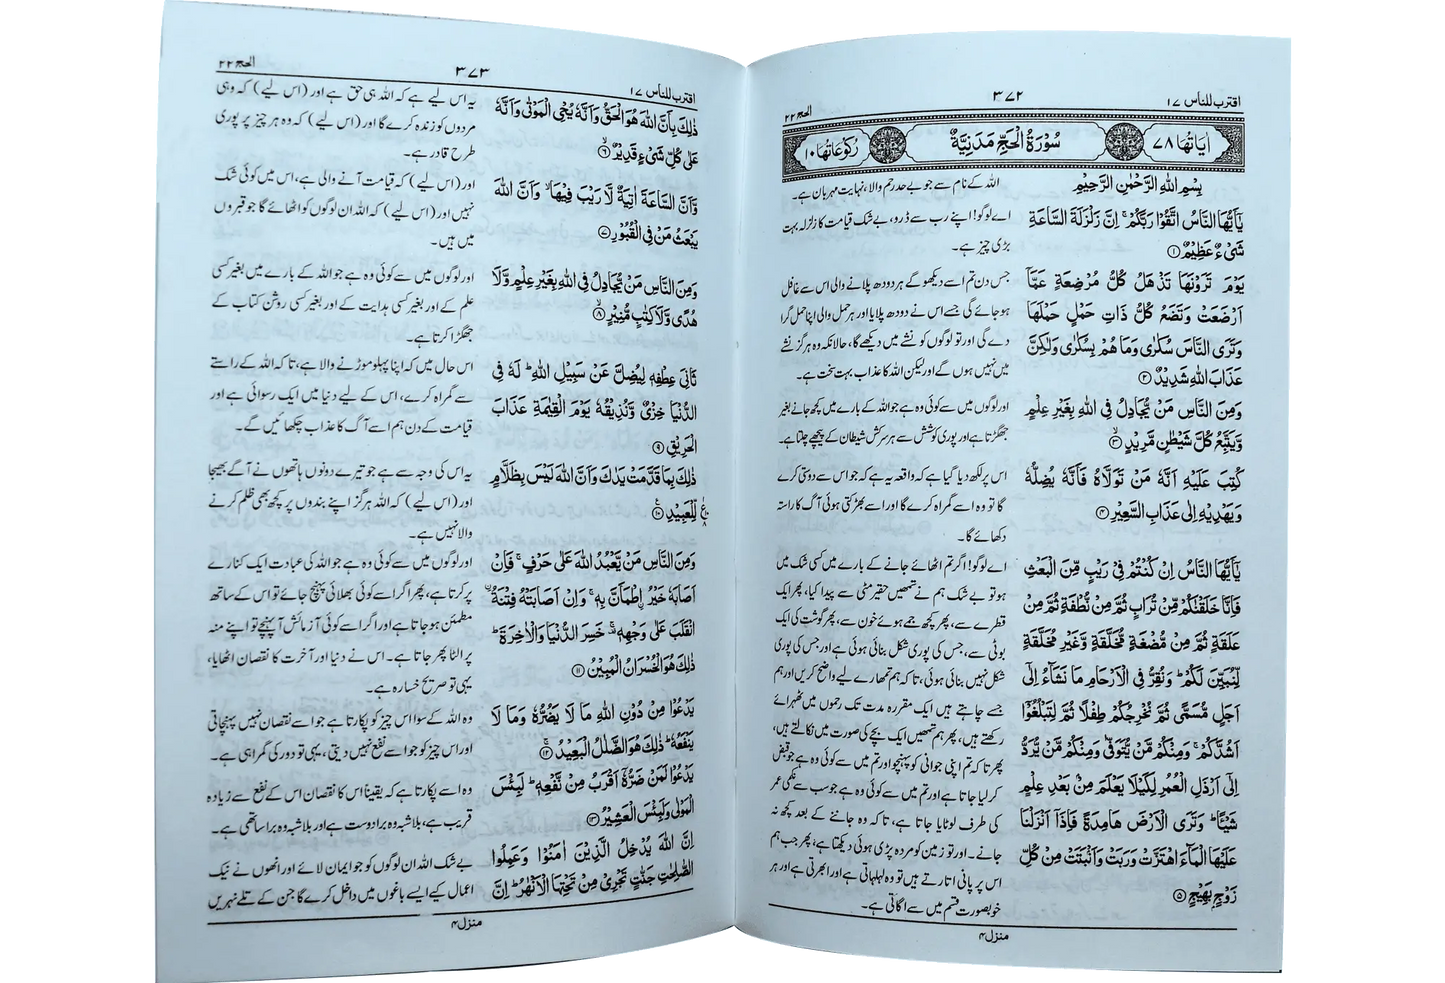 اقترب للناس ۱۷
۳۷۲
الحج ۲۲
اٰيَاتُهَا ۷۸
سُوْرَةُ الْحَجِّ مَدَنِيَّةٌ
رُكُوْعَاتُهَا ۱۰
بِسْمِ اللّٰهِ الرَّحْمٰنِ الرَّحِيْمِ
يٰۤاَيُّهَا النَّاسُ اتَّقُوْا رَبَّكُمْ ۚ اِنَّ زَلْزَلَةَ السَّاعَةِ
شَيْءٌ عَظِيْمٌ ۝۱
يَوْمَ تَرَوْنَهَا تَذْهَلُ كُلُّ مُرْضِعَةٍ عَمَّاۤ
اَرْضَعَتْ وَتَضَعُ كُلُّ ذَاتِ حَمْلٍ حَمْلَهَا
وَتَرَى النَّاسَ سُكٰرٰى وَمَا هُمْ بِسُكٰرٰى وَلٰكِنَّ
عَذَابَ اللّٰهِ شَدِيْدٌ ۝۲
وَمِنَ النَّاسِ مَنْ يُّجَادِلُ فِي اللّٰهِ بِغَيْرِ عِلْمٍ
وَّيَتَّبِعُ كُلَّ شَيْطٰنٍ مَّرِيْدٍ ۝۳
كُتِبَ عَلَيْهِ اَنَّهٗ مَنْ تَوَلَّاهُ فَاَنَّهٗ يُضِلُّهٗ
وَيَهْدِيْهِ اِلٰى عَذَابِ السَّعِيْرِ ۝۴
يٰۤاَيُّهَا النَّاسُ اِنْ كُنْتُمْ فِيْ رَيْبٍ مِّنَ الْبَعْثِ
فَاِنَّا خَلَقْنٰكُمْ مِّنْ تُرَابٍ ثُمَّ مِنْ نُّطْفَةٍ ثُمَّ مِنْ
عَلَقَةٍ ثُمَّ مِنْ مُّضْغَةٍ مُّخَلَّقَةٍ وَّغَيْرِ مُخَلَّقَةٍ
لِّنُبَيِّنَ لَكُمْ ؕ وَنُقِرُّ فِي الْاَرْحَامِ مَا نَشَآءُ اِلٰۤى
اَجَلٍ مُّسَمًّى ثُمَّ نُخْرِجُكُمْ طِفْلًا ثُمَّ لِتَبْلُغُوْۤا
اَشُدَّكُمْ ۚ وَمِنْكُمْ مَّنْ يُّتَوَفّٰى وَمِنْكُمْ مَّنْ يُّرَدُّ
اِلٰۤى اَرْذَلِ الْعُمُرِ لِكَيْلَا يَعْلَمَ مِنْۢ بَعْدِ عِلْمٍ
شَيْـًٔا ؕ وَتَرَى الْاَرْضَ هَامِدَةً فَاِذَاۤ اَنْزَلْنَا
عَلَيْهَا الْمَآءَ اهْتَزَّتْ وَرَبَتْ وَاَنْۢبَتَتْ مِنْ كُلِّ
زَوْجٍۢ بَهِيْجٍ ۝۵
اللہ کے نام سے جو بے حد رحم والا، نہایت مہربان ہے۔
اے لوگو! اپنے رب سے ڈرو، بے شک قیامت کا زلزلہ بہت
بڑی چیز ہے۔
جس دن تم اسے دیکھو گے ہر دودھ پلانے والی اس سے غافل
ہو جائے گی جسے اس نے دودھ پلایا اور ہر حمل والی اپنا حمل گرا
دے گی اور تو لوگوں کو نشے میں دیکھے گا، حالانکہ وہ ہرگز نشے
میں نہیں ہوں گے اور لیکن اللہ کا عذاب بہت سخت ہے۔
اور لوگوں میں سے کوئی وہ ہے جو اللہ کے بارے میں کچھ جانے بغیر
جھگڑتا ہے اور پوری کوشش سے ہر سرکش شیطان کے پیچھے چلتا ہے۔
اس پر لکھ دیا گیا ہے کہ واقعہ یہ ہے کہ جو اس سے دوستی کرے
گا تو وہ اسے گمراہ کرے گا اور اسے بھڑکتی ہوئی آگ کا راستہ
دکھائے گا۔
اے لوگو! اگر تم اٹھائے جانے کے بارے میں کسی شک میں
ہو تو بے شک ہم نے تمھیں حقیر مٹی سے پیدا کیا، پھر ایک
قطرے سے، پھر کچھ جمے ہوئے خون سے، پھر گوشت کی ایک
بوٹی سے، جس کی پوری شکل بنائی ہوئی ہے اور جس کی پوری
شکل نہیں بنائی ہوئی، تاکہ ہم تمھارے لیے واضح کریں اور ہم
جسے چاہتے ہیں ایک مقررہ مدت تک رحموں میں ٹھہرائے
رکھتے ہیں، پھر ہم تمھیں ایک بچے کی صورت میں نکالتے ہیں،
پھر تاکہ تم اپنی جوانی کو پہنچو اور تم میں سے کوئی وہ ہے جو قبض
کر لیا جاتا ہے اور تم میں سے کوئی وہ ہے جو سب سے نکمی عمر
کی طرف لوٹایا جاتا ہے، تاکہ وہ جاننے کے بعد کچھ نہ
جانے۔ اور تو زمین کو مردہ پڑی ہوئی دیکھتا ہے، پھر جب ہم
اس پر پانی اتارتے ہیں تو وہ لہلہاتی ہے اور ابھرتی ہے اور ہر
خوبصورت قسم میں سے اگاتی ہے۔
منزل ۴
اقترب للناس ۱۷
۳۷۳
الحج ۲۲
ذٰلِكَ بِاَنَّ اللّٰهَ هُوَ الْحَقُّ وَاَنَّهٗ يُحْيِ الْمَوْتٰى وَاَنَّهٗ
عَلٰى كُلِّ شَيْءٍ قَدِيْرٌ ۝۶
وَّاَنَّ السَّاعَةَ اٰتِيَةٌ لَّا رَيْبَ فِيْهَا ۙ وَاَنَّ اللّٰهَ
يَبْعَثُ مَنْ فِي الْقُبُوْرِ ۝۷
وَمِنَ النَّاسِ مَنْ يُّجَادِلُ فِي اللّٰهِ بِغَيْرِ عِلْمٍ وَّلَا
هُدًى وَّلَا كِتٰبٍ مُّنِيْرٍ ۝۸
ثَانِيَ عِطْفِهٖ لِيُضِلَّ عَنْ سَبِيْلِ اللّٰهِ ؕ لَهٗ فِي
الدُّنْيَا خِزْيٌ وَّنُذِيْقُهٗ يَوْمَ الْقِيٰمَةِ عَذَابَ
الْحَرِيْقِ ۝۹
ذٰلِكَ بِمَا قَدَّمَتْ يَدٰكَ وَاَنَّ اللّٰهَ لَيْسَ بِظَلَّامٍ
لِّلْعَبِيْدِ ۝۱۰
وَمِنَ النَّاسِ مَنْ يَّعْبُدُ اللّٰهَ عَلٰى حَرْفٍ ۚ فَاِنْ
اَصَابَهٗ خَيْرُ ۨاطْمَاَنَّ بِهٖ ۚ وَاِنْ اَصَابَتْهُ فِتْنَةُ ۨ
انْقَلَبَ عَلٰى وَجْهِهٖ ۚ خَسِرَ الدُّنْيَا وَالْاٰخِرَةَ ؕ
ذٰلِكَ هُوَ الْخُسْرَانُ الْمُبِيْنُ ۝۱۱
يَدْعُوْا مِنْ دُوْنِ اللّٰهِ مَا لَا يَضُرُّهٗ وَمَا لَا
يَنْفَعُهٗ ؕ ذٰلِكَ هُوَ الضَّلٰلُ الْبَعِيْدُ ۝۱۲
يَدْعُوْا لَمَنْ ضَرُّهٗۤ اَقْرَبُ مِنْ نَّفْعِهٖ ؕ لَبِئْسَ
الْمَوْلٰى وَلَبِئْسَ الْعَشِيْرُ ۝۱۳
اِنَّ اللّٰهَ يُدْخِلُ الَّذِيْنَ اٰمَنُوْا وَعَمِلُوا
الصّٰلِحٰتِ جَنّٰتٍ تَجْرِيْ مِنْ تَحْتِهَا الْاَنْهٰرُ ؕ اِنَّ
یہ اس لیے ہے کہ اللہ ہی حق ہے اور (اس لیے) کہ وہی
مردوں کو زندہ کرے گا اور (اس لیے) کہ وہ ہر چیز پر پوری
طرح قادر ہے۔
اور (اس لیے) کہ قیامت آنے والی ہے، اس میں کوئی شک
نہیں اور (اس لیے) کہ اللہ ان لوگوں کو اٹھائے گا جو قبروں
میں ہیں۔
اور لوگوں میں سے کوئی وہ ہے جو اللہ کے بارے میں بغیر کسی
علم کے اور بغیر کسی ہدایت کے اور بغیر کسی روشن کتاب کے
جھگڑا کرتا ہے۔
اس حال میں کہ اپنا پہلو موڑنے والا ہے، تاکہ اللہ کے راستے
سے گمراہ کرے، اس کے لیے دنیا میں ایک رسوائی ہے اور
قیامت کے دن ہم اسے آگ کا عذاب چکھائیں گے۔
یہ اس کی وجہ سے ہے جو تیرے دونوں ہاتھوں نے آگے بھیجا
اور (اس لیے) کہ اللہ ہرگز اپنے بندوں پر کچھ بھی ظلم کرنے
والا نہیں ہے۔
اور لوگوں میں سے کوئی وہ ہے جو اللہ کی عبادت ایک کنارے
پر کرتا ہے، پھر اگر اسے کوئی بھلائی پہنچ جائے تو اس کے ساتھ
مطمئن ہو جاتا ہے اور اگر اسے کوئی آزمائش آ پہنچے تو اپنے منہ
پر الٹا پھر جاتا ہے۔ اس نے دنیا اور آخرت کا نقصان اٹھایا،
یہی تو صریح خسارہ ہے۔
وہ اللہ کے سوا اس چیز کو پکارتا ہے جو اسے نقصان نہیں پہنچاتی
اور اس چیز کو جو اسے نفع نہیں دیتی، یہی تو دور کی گمراہی ہے۔
وہ اسے پکارتا ہے کہ یقیناً اس کا نقصان اس کے نفع سے زیادہ
قریب ہے، بلاشبہ وہ برا دوست ہے اور بلاشبہ وہ برا ساتھی ہے۔
بے شک اللہ ان لوگوں کو جو ایمان لائے اور انھوں نے نیک
اعمال کیے ایسے باغوں میں داخل کرے گا جن کے تلے نہریں
منزل ۴